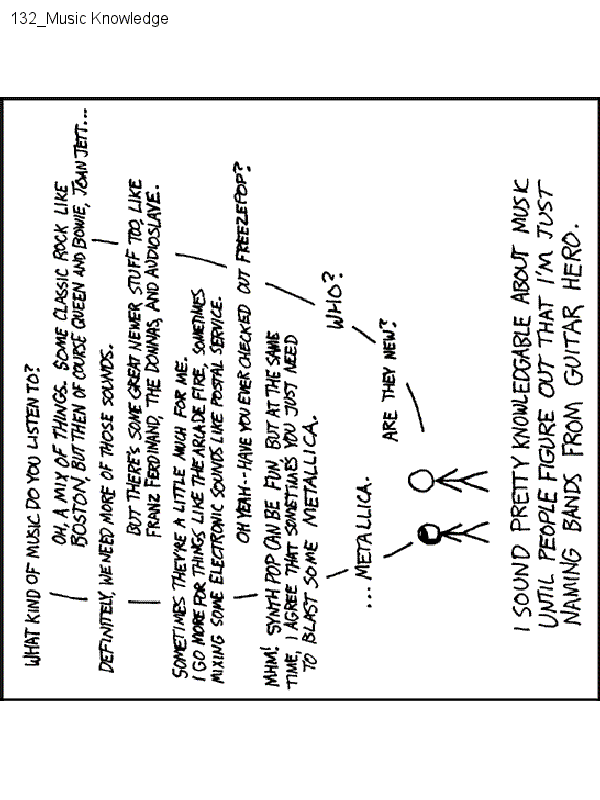 132_Music Knowledge
WHAT KIND OF MUSIC DO YOU LISTEN TO?
OH, A MIX OF THINGS. SOME CLASSIC ROCK LIKE
BOSTON, BUT THEN OF COURSE QUEEN AND BOWIE, JOAN JETT...
DEFINITELY, WE NEED MORE OF THOSE SOUNDS.
BUT THERE'S SOME GREAT NEWER STUFF TOO, LIKE
FRANZ FERDINAND, THE DONNAS, AND AUDIOSLAVE.
SOMETIMES THEY'RE A LITTLE MUCH FOR ME.
I GO MORE FOR THINGS LIKE THE ARCADE FIRE, SOMETIMES
MIXING SOME ELECTRONIC SOUNDS LIKE POSTAL SERVICE.
OH YEAH--HAVE YOU EVER CHECKED OUT FREEZEPOP?
MHM! SYNTH POP CAN BE FUN, BUT AT THE SAME
TIME, I AGREE THAT SOMETIMES YOU JUST NEED
TO BLAST SOME METALLICA.
WHO?
...METALLICA.
ARE THEY NEW?
I SOUND PRETTY KNOWLEDGABLE ABOUT MUSIC
UNTIL PEOPLE FIGURE OUT THAT I'M JUST
NAMING BANDS FROM GUITAR HERO.